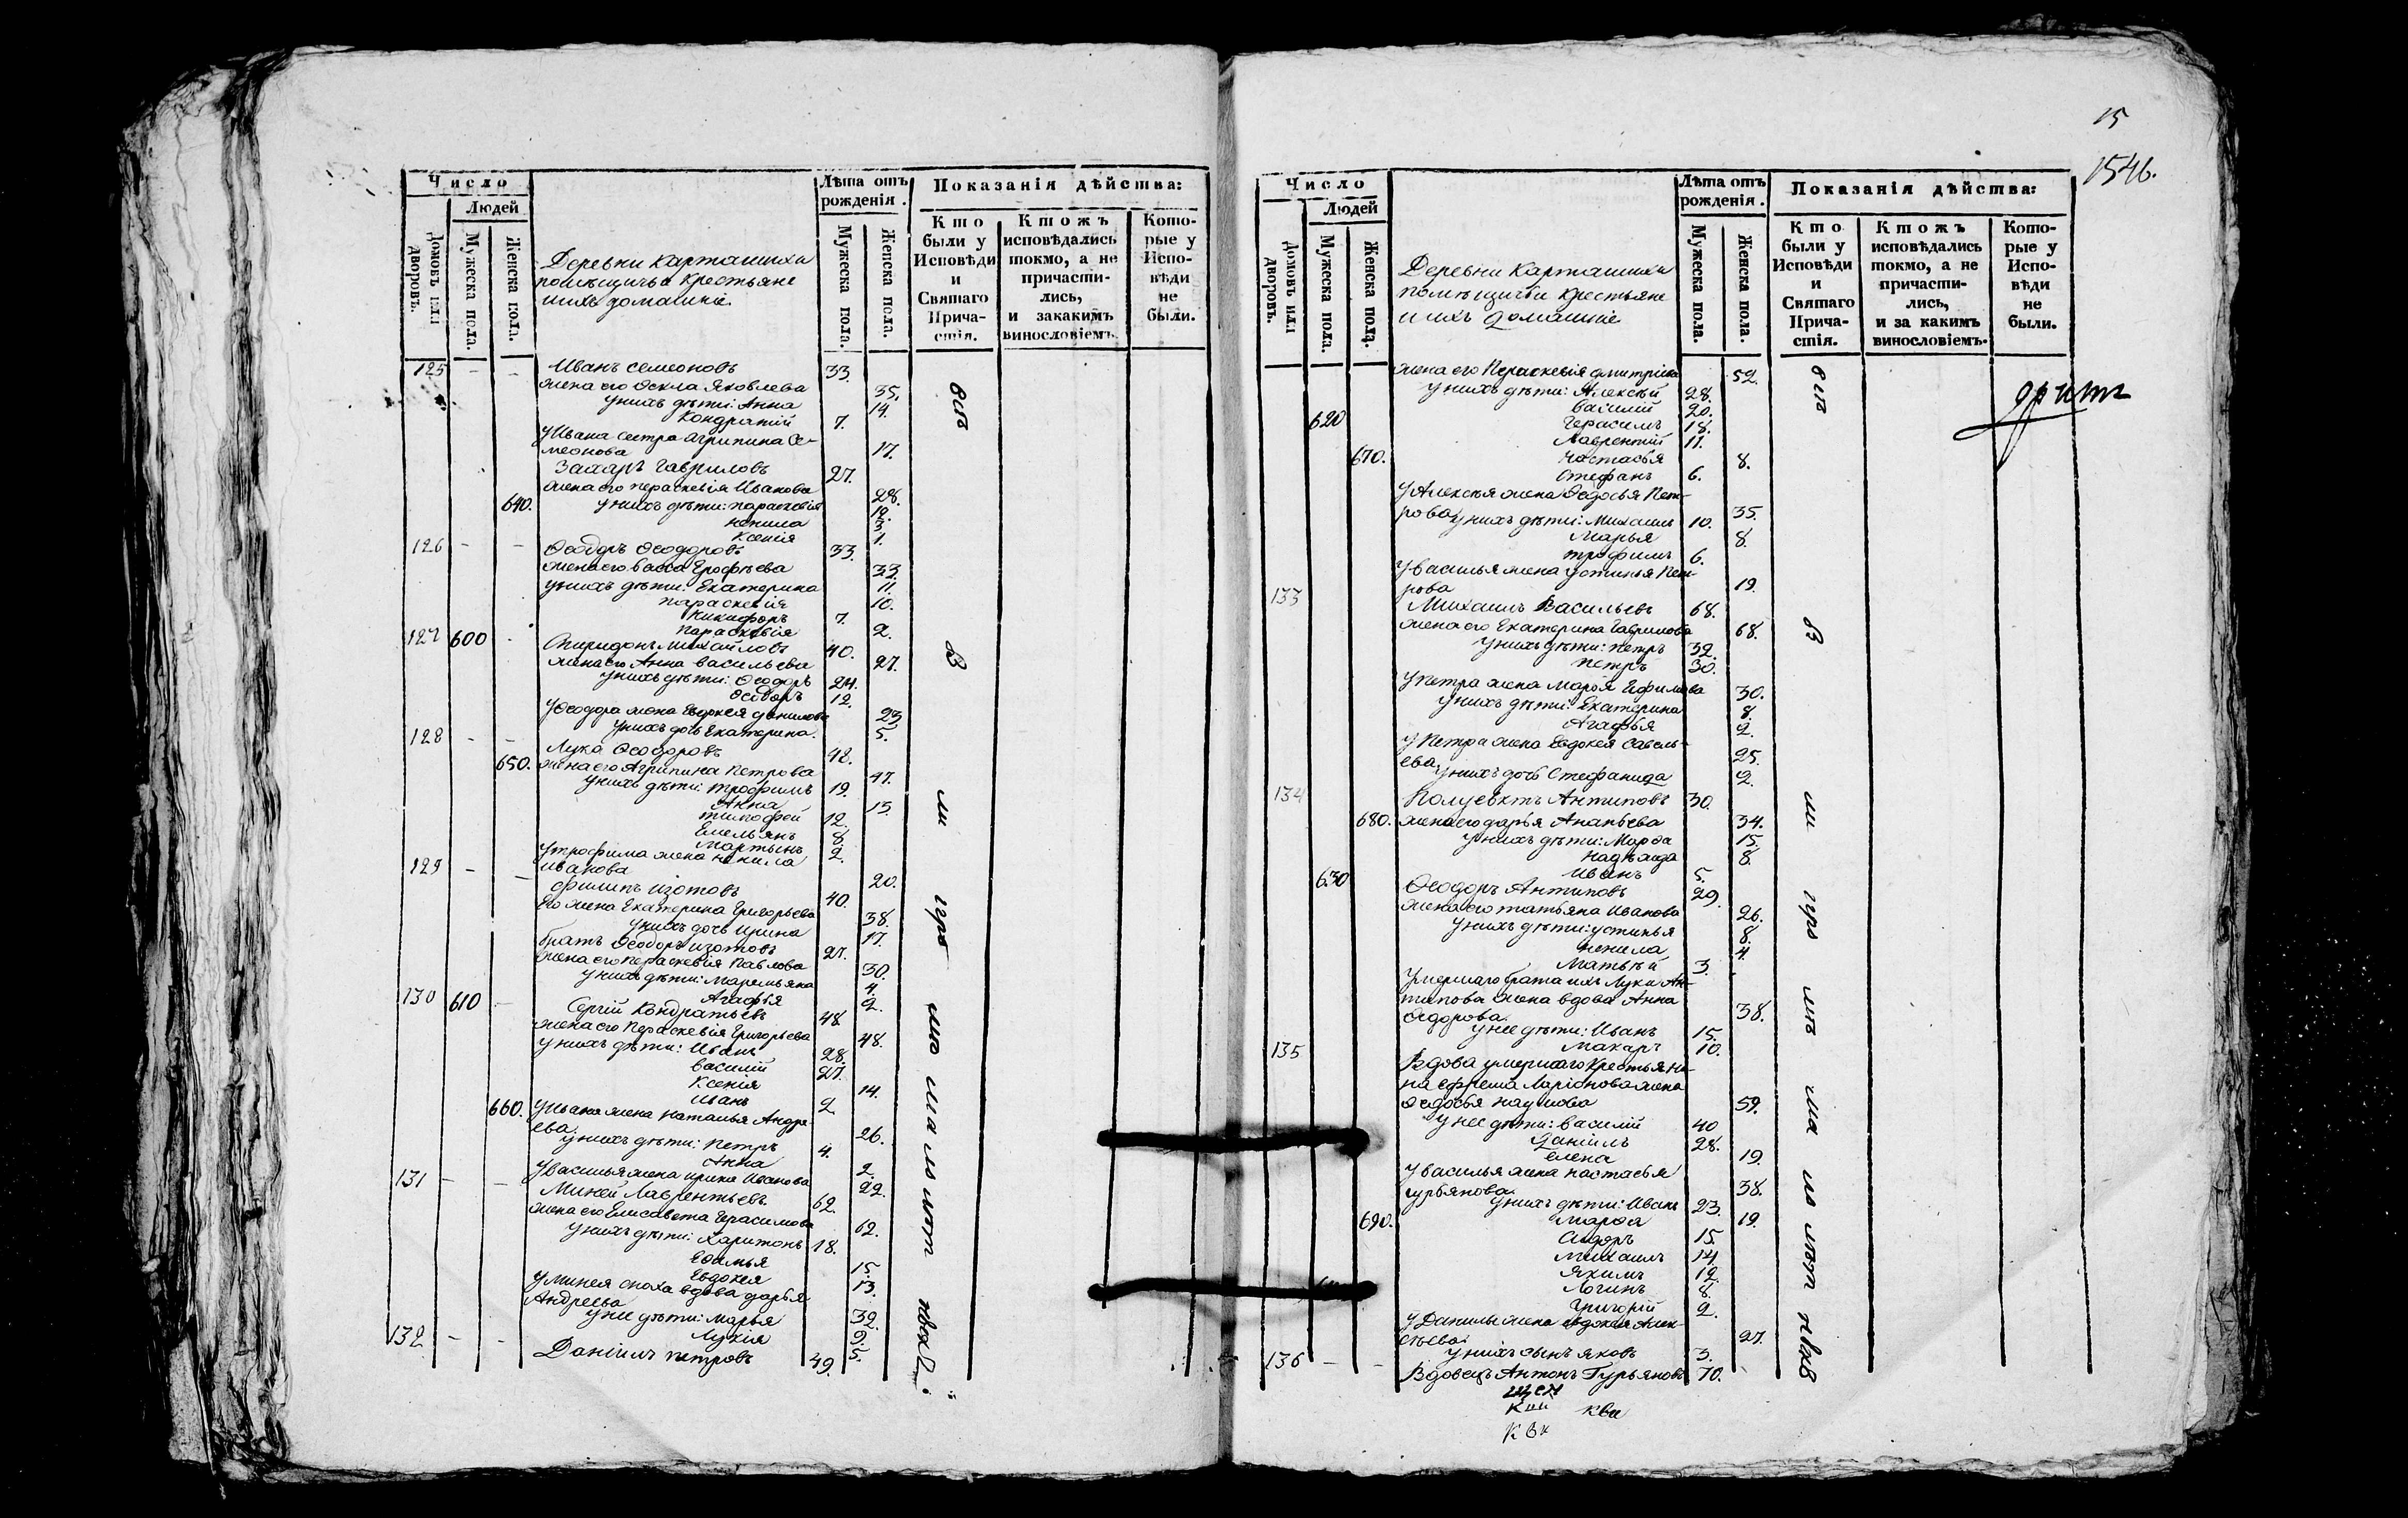 Число
Людей
Домовъ или дворовъ.
Мужеска пола.
Женска пола.
Деревни Карташихи
помѣщичьи Крестьяне
и ихъ домашніе
Лѣта отъ рожденія.
Мужеска пола.
Женска пола.
Показанія дѣйства:
Кто были у Исповѣди и Святаго Причастія.
Ктожъ исповѣдались токмо, а не причастились, и закакимъ винословіемъ.
Которые у Исповѣди не были.
125 - - Иванъ Семеоновъ 33.
жена его Ѳекла Яковлева 35.
у нихъ дѣти: Анна 14.
Кондратій 7.
у Ивана сестра Агрипина Се-
меонова 17.
Захаръ Гавриловъ 27.
жена его Параскевія Иванова 28.
640. у нихъ дѣти: Параскевія 12.
Ненила 3.
Ксенія 1.
126 - - Ѳеодоръ Ѳеодоровъ 33.
жена его Васса Ерофѣева 33.
у нихъ дѣти: Екатерина 11.
Параскевія 10.
Никифоръ 7.
Параскевія 2.
127 600 - Спиридонъ Михайловъ 40.
жена его Анна Васильева 27.
у нихъ дѣти: Ѳеодоръ 24.
Ѳеодоръ 12.
у Ѳеодора жена Евдокея Данилова 23
у нихъ дочь Екатерина. 5.
128 - - Лука Ѳеодоровъ 48.
650. жена его Агрипина Петрова 47.
у нихъ дѣти: Трофимъ 19.
Анна 15.
Тимофей 12.
Емельянъ 8
Мартынъ 2.
у Трофима жена Ненила
Иванова 20.
129 - - Филипъ Изотовъ 40.
его жена Екатерина Григорьева 38.
у нихъ дочь Ирина 17.
братъ Ѳеодоръ Изотовъ 27.
жена его Пераскевія Павлова 30.
у нихъ дѣти: Маремьяна 4.
Агафья 2.
130 610 - Сергій Кондратьевъ 48
жена его Пераскевія Григорьева 48.
у нихъ дѣти: Иванъ 28.
Василій 27.
Ксенія 14.
Иванъ 2
660. у Ивана жена Наталья Андре-
ева. 26.
у нихъ дѣти: Петръ 4.
Анна 2.
у Василья жена Ирина Иванова 22.
131 - - Миней Лаврентьевъ 62.
жена его Елисавета Герасимова 62.
у нихъ дѣти: Харитонъ 18.
15
Евдокея 13.
у Минея сноха вдова Дарья
Андреева 32.
у нее дѣти: Марья 9.
Лукія 5.
132 - - Даніилъ Петровъ 49.
15
1546.
Число
Людей
Домовъ или дворовъ.
Мужеска пола.
Женска пола.
Деревни Карташихи
помѣщичьи Крестьяне
и ихъ домашніе
Лѣта отъ рожденія.
Мужеска пола.
Женска пола.
Показанія дѣйства:
Кто были у Исповѣди и Святаго Причастія.
Ктожъ исповѣдались токмо, а не причастились, и за какимъ винословіемъ.
Которые у Исповѣди не были.
жена его Пераскевія Дмитріева 52.
у нихъ дѣти: Алексѣй 28.
Василій 20.
620 Герасимъ 18.
Лаврентій 11.
670. Настасья 8.
Стефанъ 6.
у Алексѣя жена Ѳедосья Пет-
рова 35.
у нихъ дѣти: Михаилъ 10.
Марья 8.
Трофимъ 6.
у Василья жена Устинья Пет-
рова 19.
133 Михаилъ Васильевъ 68.
жена его Екатерина Гаврилова 68.
у нихъ дѣти: Петръ 32.
Петръ 30.
у Петра жена Марія Ефимова 30.
у нихъ дѣти: Екатерина 8.
Агафья 2.
у Петра жена Евдокея Савель-
ева 25.
у нихъ дочь Стефанида 2.
134 Полуевктъ Антиповъ 30.
680. жена его Дарья Ананьева 34.
у нихъ дѣти: Марѳа 15.
Надежда 8.
630 Иванъ 5.
Ѳеодоръ Антиповъ 29.
жена его Татьяна Иванова 26.
у нихъ дѣти: Устинья 8.
Ненила 4.
Матвѣй 3.
умершаго брата ихъ Луки Ан-
типова жена вдова Анна
Ѳедорова. 38.
у нее дѣти: Иванъ 15.
Макаръ 10.
135 Вдова умершаго Крестьяни-
на Ефрема Ларіонова жена
Ѳедосья Наумова 59.
у нее дѣти: Василій 40
Даніилъ 28.
Елена 19.
у Василья жена Настасья
Гурьянова 38.
у нихъ дѣти: Иванъ 23.
690. Марѳа 19.
Сидоръ 15.
Михаилъ 14.
Якимъ 12.
Логинъ 8.
Григорій 2.
у Данилы жена Евдокея Алек-
сѣева 27.
у нихъ сынъ Яковъ 3.
136 - - Вдовецъ Антонъ Гурьяновъ 70.